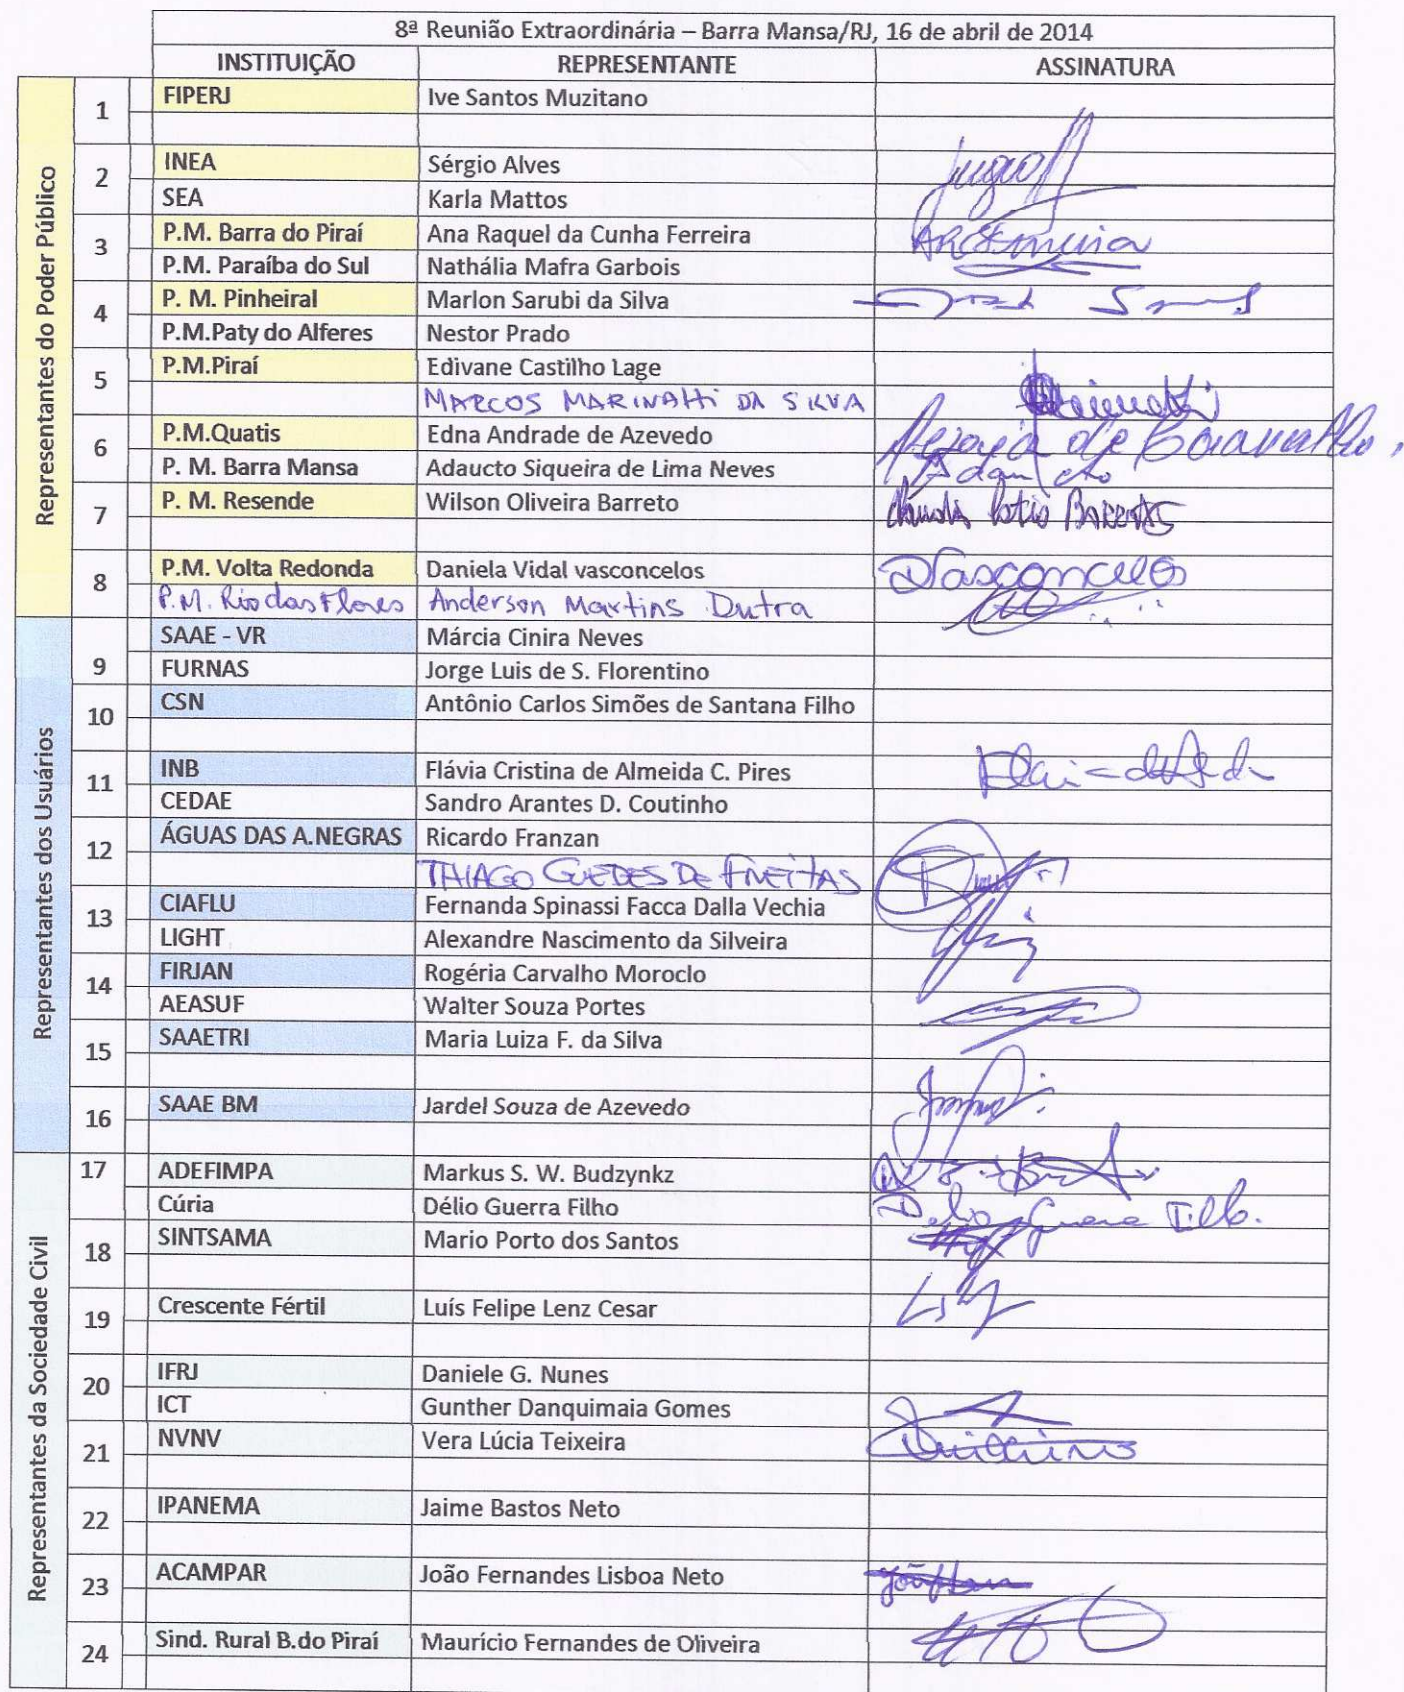 8ª Reunião Extraordinária – Barra Mansa/RJ, 16 de abril de 2014
INSTITUIÇÃO REPRESENTANTE ASSINATURA
Representantes do Poder Público
1 FIPERJ Ive Santos Muzitano
2 INEA Sérgio Alves
SEA Karla Mattos
3 P.M. Barra do Piraí Ana Raquel da Cunha Ferreira
P.M. Paraíba do Sul Nathália Mafra Garbois
4 P. M. Pinheiral Marlon Sarubi da Silva
P.M.Paty do Alferes Nestor Prado
5 P.M.Piraí Edivane Castilho Lage
MARCOS MARINATTI DA SILVA
6 P.M.Quatis Edna Andrade de Azevedo
P. M. Barra Mansa Adaucto Siqueira de Lima Neves
7 P. M. Resende Wilson Oliveira Barreto
8 P.M. Volta Redonda Daniela Vidal vasconcelos DVasconcelos
P.M. Rio das Flores Anderson Martins Dutra
Representantes dos Usuários
SAAE - VR Márcia Cinira Neves
9 FURNAS Jorge Luis de S. Florentino
10 CSN Antônio Carlos Simões de Santana Filho
11 INB Flávia Cristina de Almeida C. Pires
CEDAE Sandro Arantes D. Coutinho
12 ÁGUAS DAS A.NEGRAS Ricardo Franzan
THIAGO GUEDES DE FREITAS
13 CIAFLU Fernanda Spinassi Facca Dalla Vechia
LIGHT Alexandre Nascimento da Silveira
14 FIRJAN Rogéria Carvalho Moroclo
AEASUF Walter Souza Portes
15 SAAETRI Maria Luiza F. da Silva
16 SAAE BM Jardel Souza de Azevedo
Representantes da Sociedade Civil
17 ADEFIMPA Markus S. W. Budzynkz
Cúria Délio Guerra Filho
18 SINTSAMA Mario Porto dos Santos
19 Crescente Fértil Luís Felipe Lenz Cesar
20 IFRJ Daniele G. Nunes
ICT Gunther Danquimaia Gomes
21 NVNV Vera Lúcia Teixeira
22 IPANEMA Jaime Bastos Neto
23 ACAMPAR João Fernandes Lisboa Neto
24 Sind. Rural B.do Piraí Maurício Fernandes de Oliveira